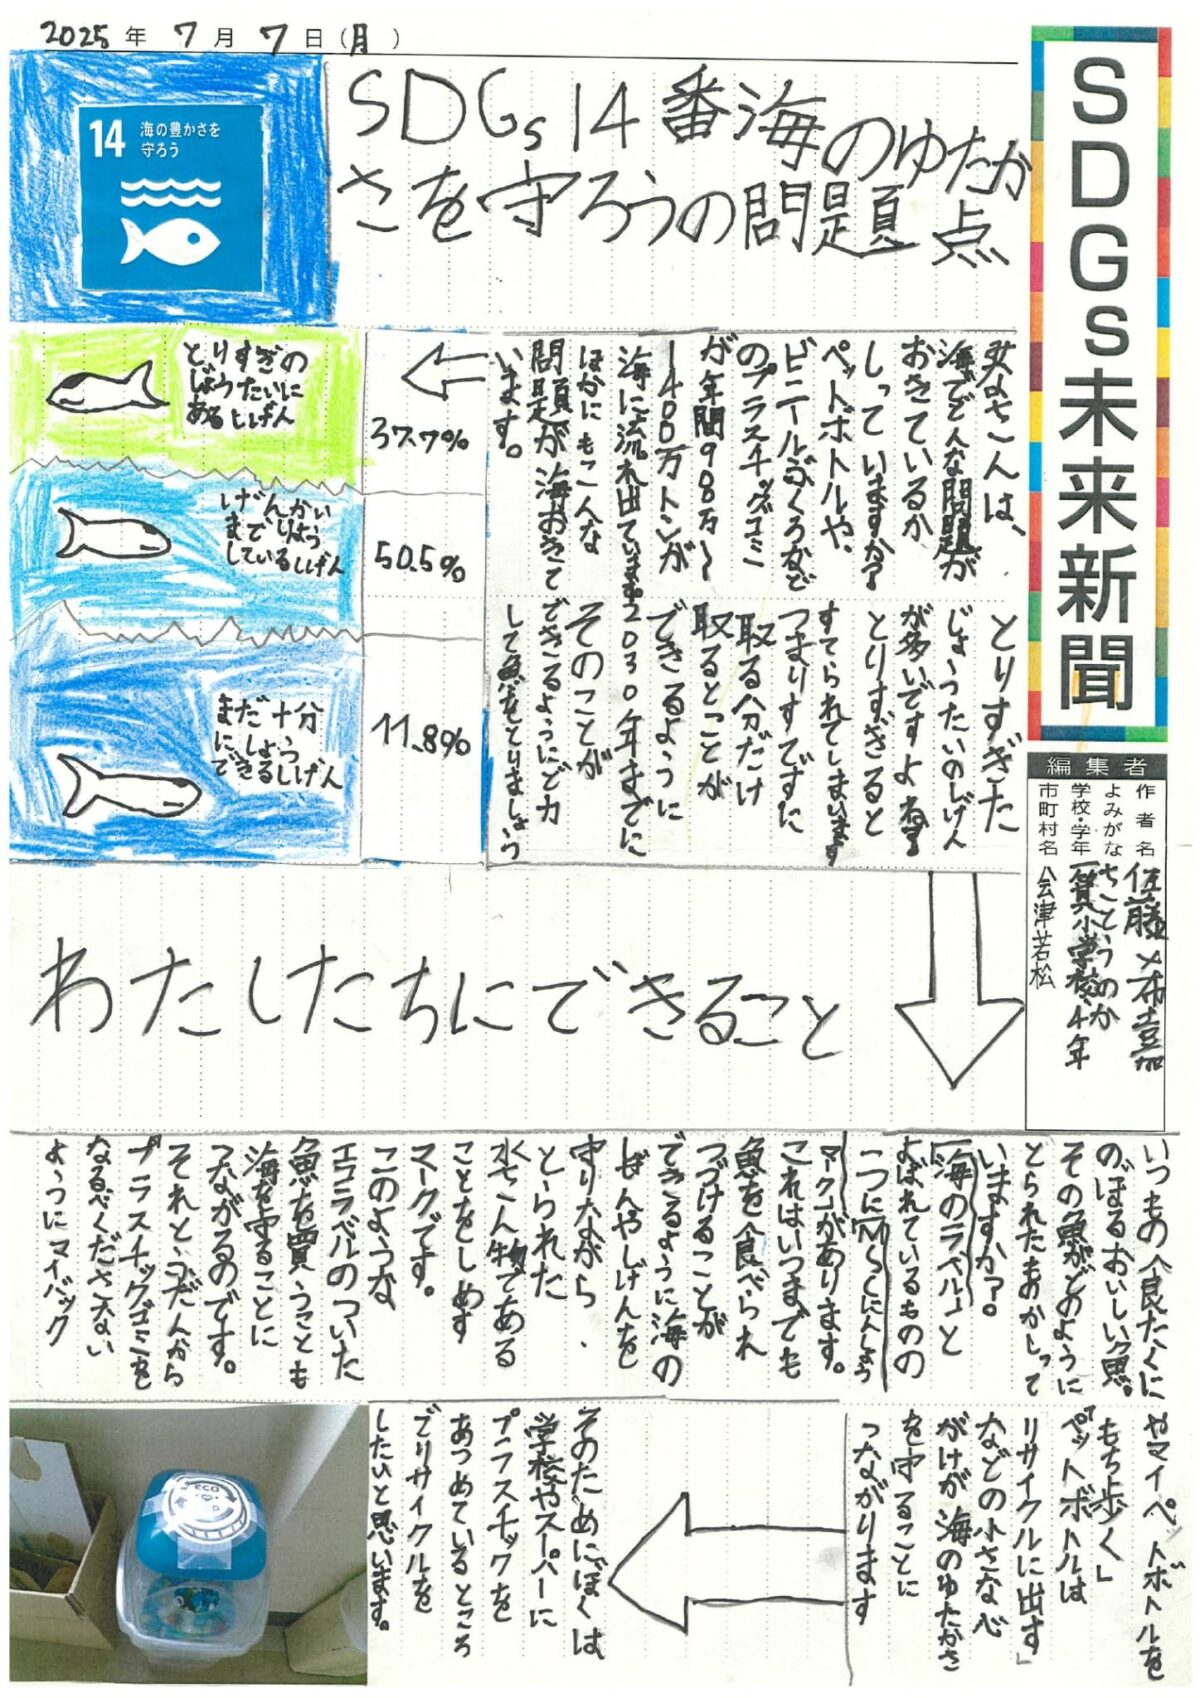 2025年7月7日(月)
SDGs未来新聞
SDGs14番海のゆたか
さを守ろうの問題点
14 海の豊かさを
守ろう
編集者
作者名
よみがな
さとうのか
学校・学年
一箕小学校4年
市町村名
会津若松
みなさんは、
海でどんな問題が
おきているか
しっていますか?
ペットボトルや、
ビニールぶくろなど
のプラスチックゴミ
が年間900万〜
1400万トンが
海に流れ出ています。
ほかにもこんな
問題が海おきて
います。
37.7%
50.5%
11.8%
とりすぎの
じょうたいに
あるしげん
げんかい
までりよう
しているしげん
まだ十分
にりよう
できるしげん
とりすぎた
じょうたいのしげん
が多いですよね。
とりすぎると
すてられてしまいます
つまりすでずに
取る分だけ
取るとことが
できるように
2030年までに
そのことが
できるようにど力
して魚をとりましょう
わたしたちにできること
いつもの食たくに
のぼるおいしい魚。
その魚がどのように
とられたものかしって
いますか?。
「海のラベル」と
よばれているものの
一つに「MSCにんしょう
マーク」があります。
これはいつまでも
魚を食べられ
つづけることが
できるように海の
しぜんやしげんを
守りながら、
とられた
水さん物である
ことをしめす
マークです。
このような
エコラベルのついた
魚を買うことも
海を守ることに
つながるのです。
それとふだんから
プラスチックゴミを
なるべくださない
ようにマイバック
やマイペットボトルを
もち歩く」
ペットボトルは
リサイクルに出す」
などの小さな心
がけが海のゆたかさ
を守ることに
つながります
そのためにぼくは
学校やスーパーに
プラスチックを
あつめているところ
でリサイクルを
したいと思います。
ECO